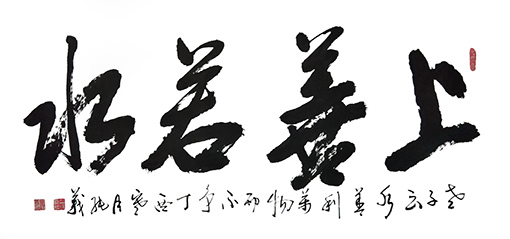 上善若水
老子云水善利萬物而不争丁酉寒月純義